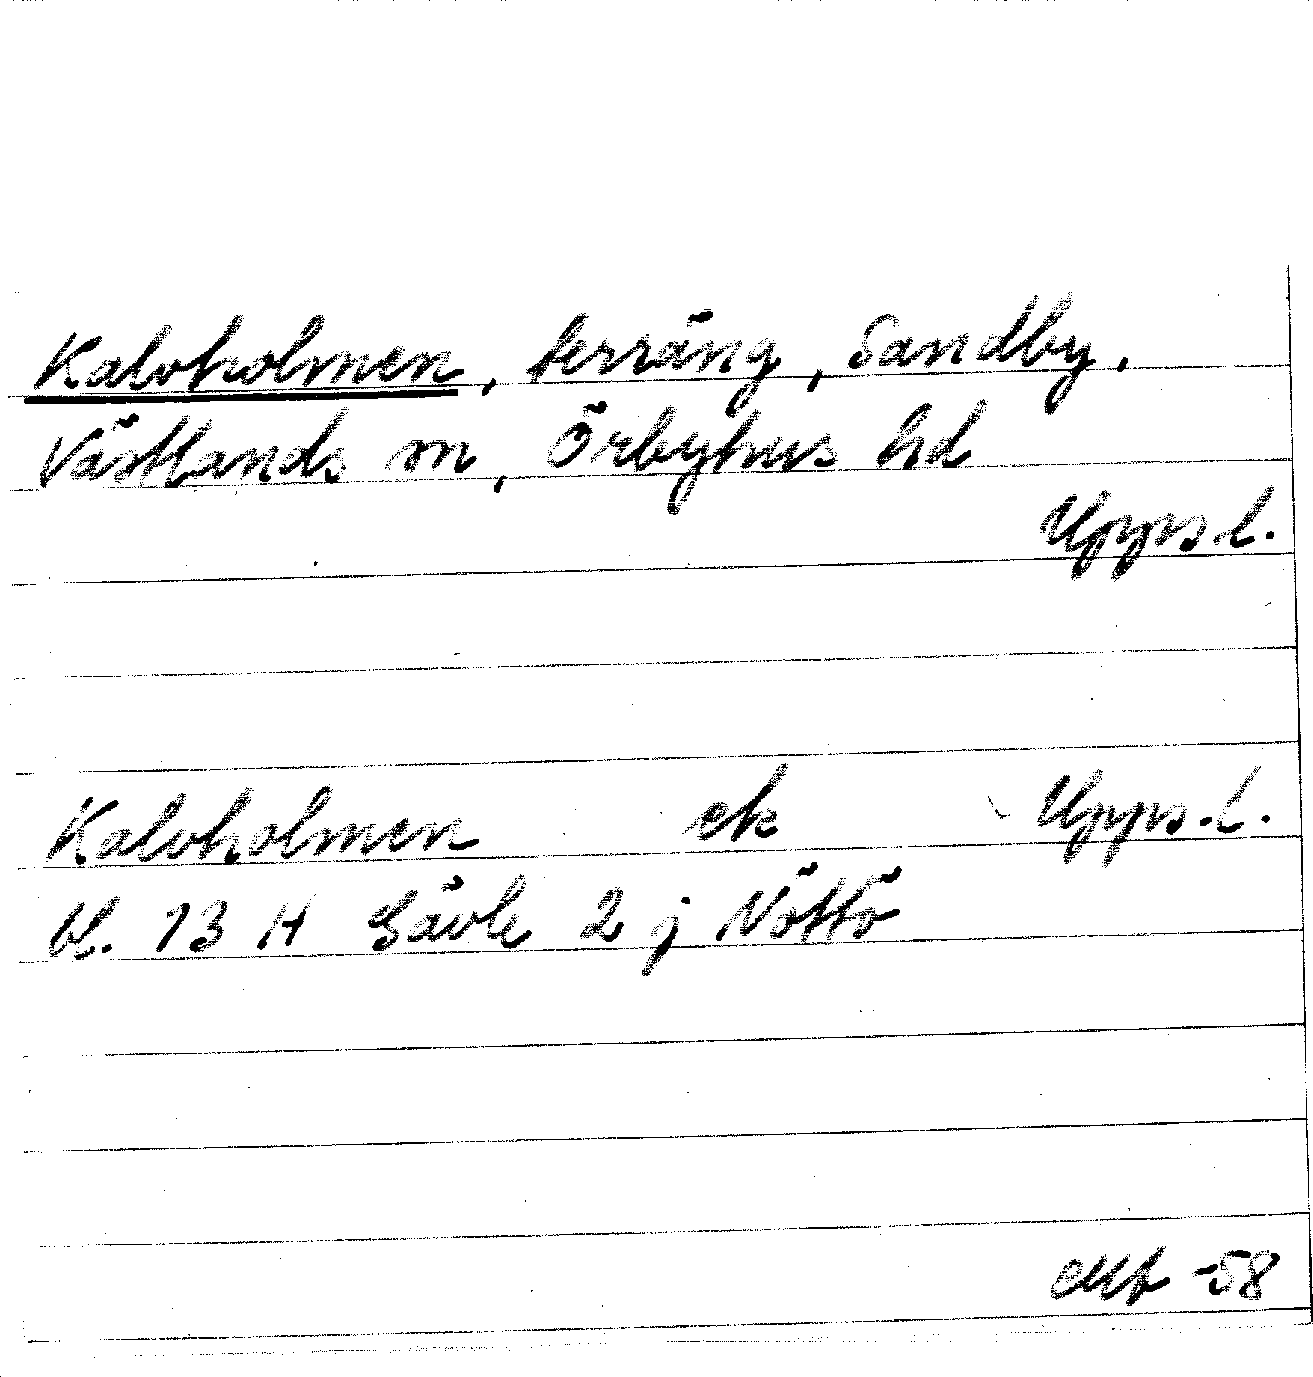 Kalvholmen, terräng, Sandby,
Västlands sn, Örbyhus hd
Upps.l.
Kalvholmen ek Upps.l.
bl. 13 H Gävle 2 j Nöttö
-58